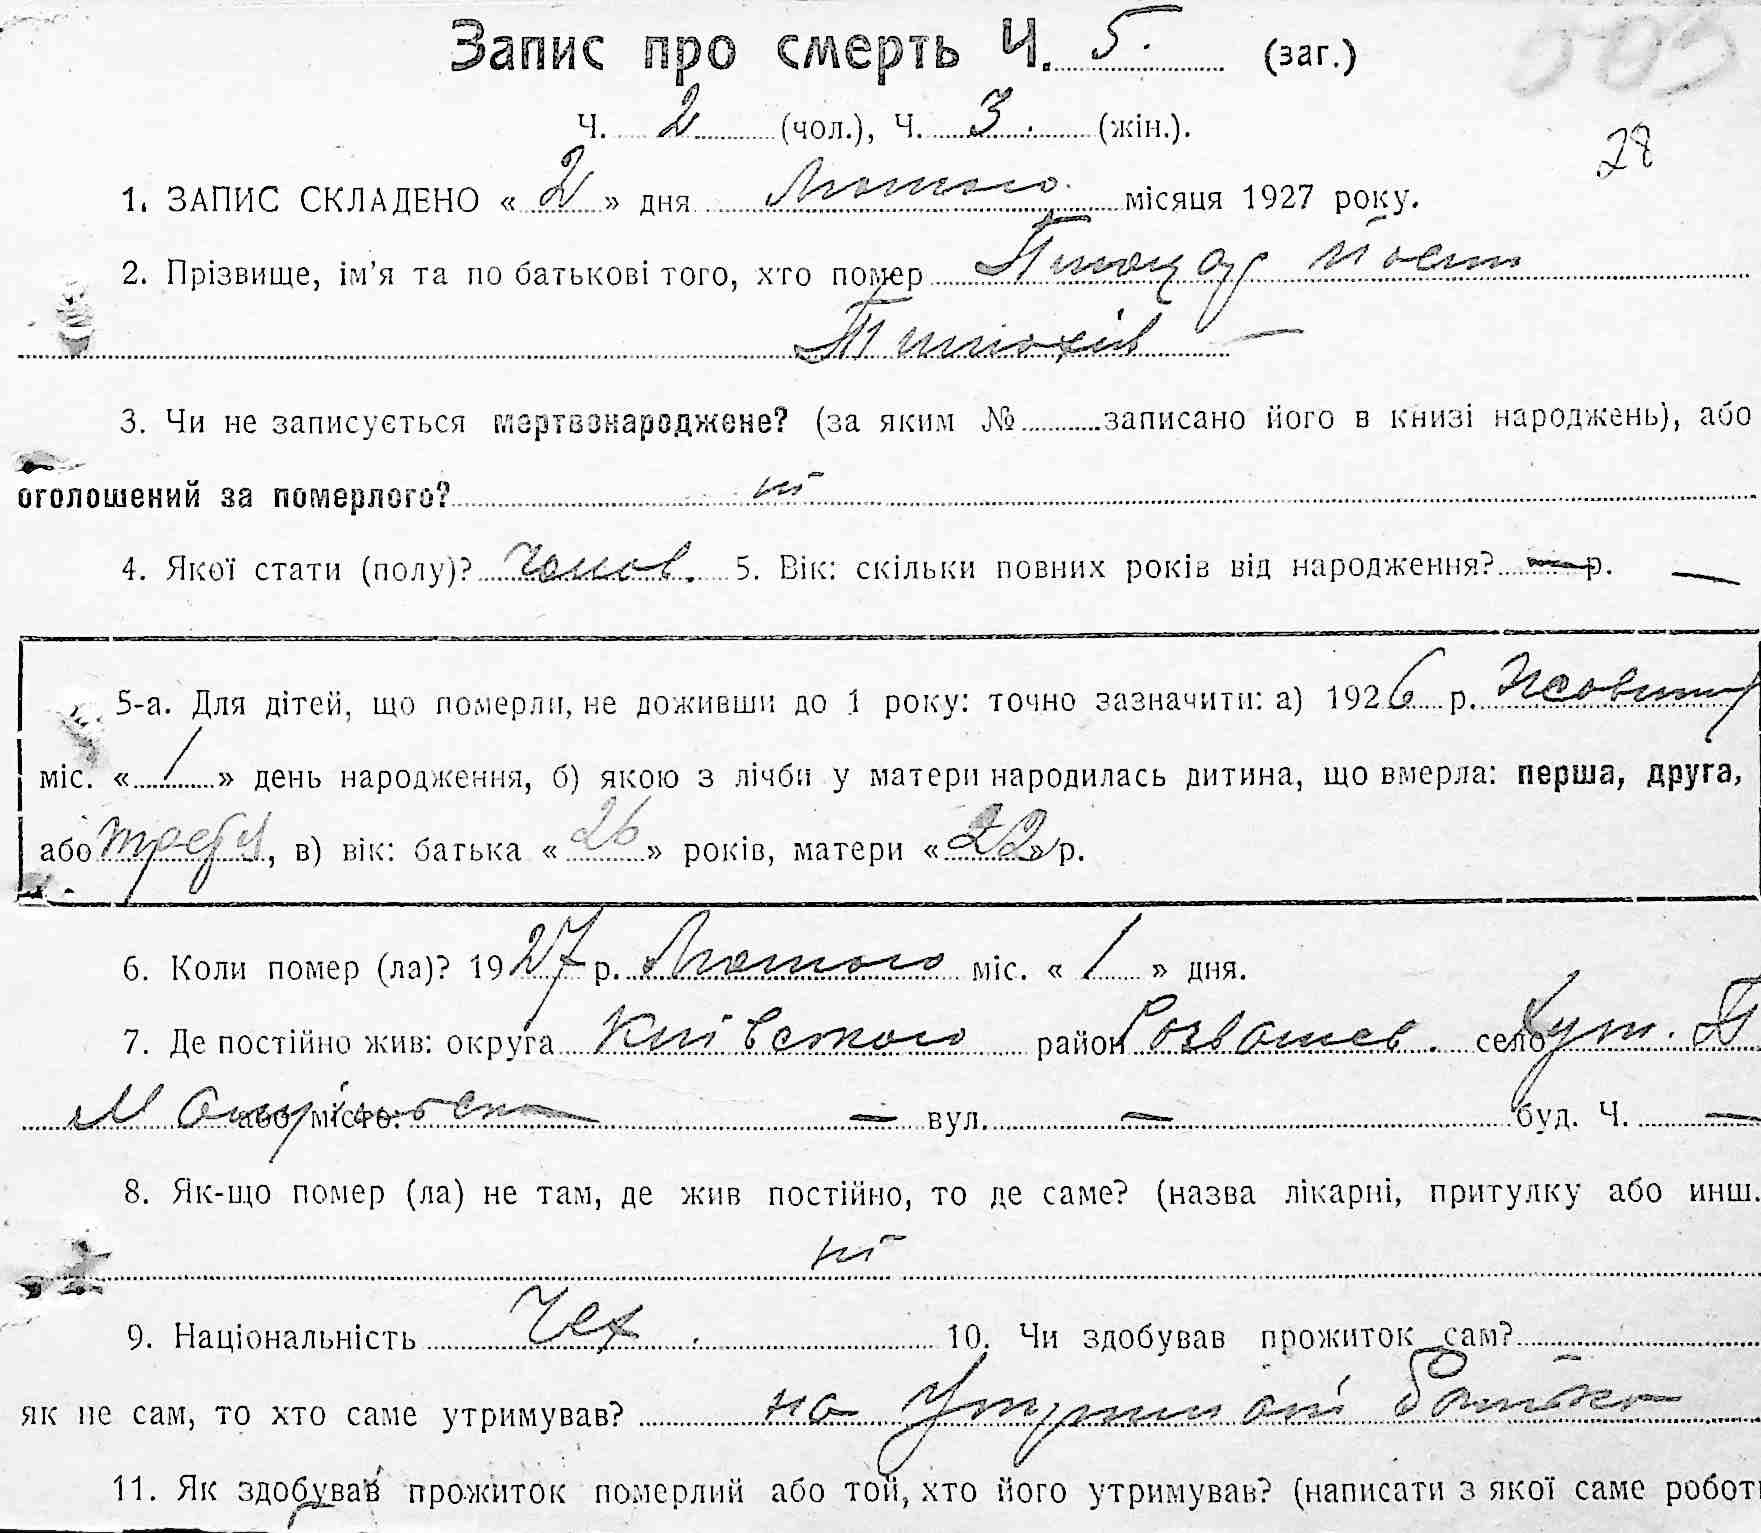 Запис про смерть Ч. 5. (заг.)
Ч. 2 (чол.), Ч. 3. (жін.).
28
1. ЗАПИС СКЛАДЕНО « 2 » дня Лютого місяця 1927 року.
2. Прізвище, ім'я та по батькові того, хто помер
3. Чи не записується мертвонароджене? (за яким № записано його в книзі народжень), або
оголошений за померлого? ні
4. Якої стати (полу)? чолов. 5. Вік: скільки повних років від народження? — р. —
5-а. Для дітей, що померли, не доживши до 1 року: точно зазначити: а) 1926 р. Жовтня
міс. « 1 » день народження, б) якою з лічби у матери народилась дитина, що вмерла: перша, друга,
або третя, в) вік: батька « 26 » років, матери « 22 » р.
6. Коли помер (ла)? 1927 р. Лютого міс. « 1 » дня.
7. Де постійно жив: округа Київського район Розважев. село Хут.
або місто. — вул. — буд. Ч. —
8. Як-що помер (ла) не там, де жив постійно, то де саме? (назва лікарні, притулку або инш.
ні
9. Національність Чех. 10. Чи здобував прожиток сам?
як не сам, то хто саме утримував? на утриманні батька
11. Як здобував прожиток померлий або той, хто його утримував? (написати з якої саме